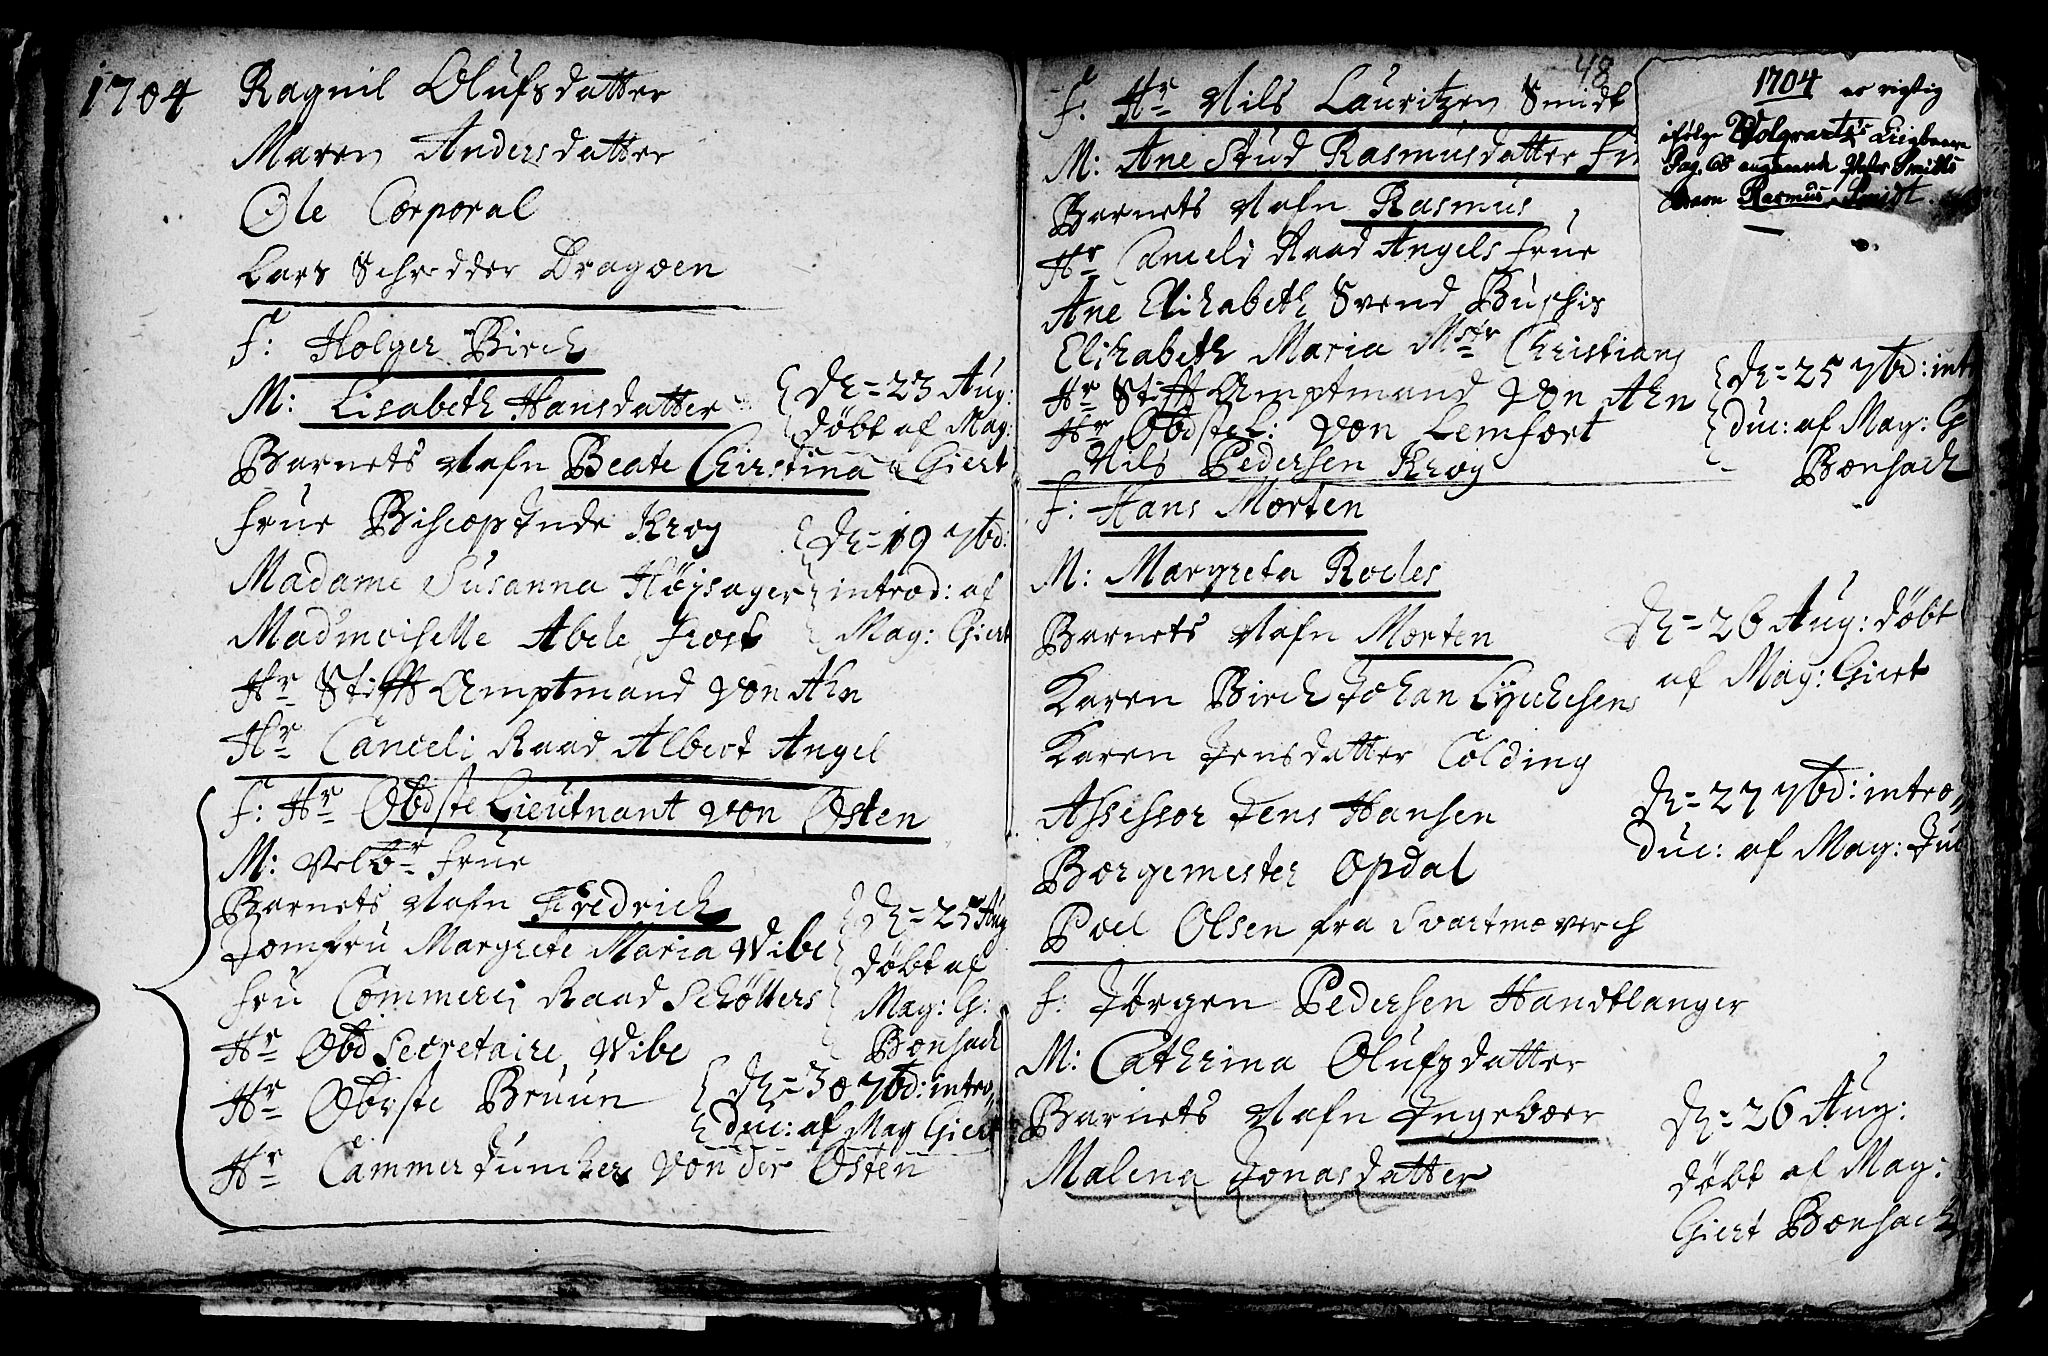 1704
Ragnil Olufsdatter
Maren Andersdatter
Ole Corporal
Lars Schrædder Dragoen
F: Holger Birch
M: Lisabeth Hansdatter
Barnets Nafn Beate Christina
Frue Biscopinde Krog
Madame Susanna Höjsager
Mad'moiselle Abele Frost
Hr Stifft Amptmand von Ahn
Hr Canceli Raad Albert Angel
D= 23 Aug:
döbt af Mag:
Giert
D= 19 7bd:
introd: af
Mag: Giert
F: Hr Obdste Lieutnant von Osten
M: Velbr Frue
Barnets Nafn Fredrich
Jomfru Margrete Maria Vibe
Fru Commerci Raad Schöllers
Hr Obd Secretaire Vibe
Hr Oberste Bruun
Hr Cammer Juncker von der Osten
D= 25 Aug
döbt af
Mag: G:
Bonsach
D= 30 7bd: intro,,
duc: af Mag Giert
48
F: Hr Nils Lauritzen Smidt
M: Ane Stud Rasmusdatter
Barnets Nafn Rasmus
Hr Canceli Raad Angels Frue
Ane Elisabeth Svend Buschis
Elisabeth Maria Mstr Christians
Hr Stifft Amptmand von Ahn
Hr Obdste L: von Lemfort
Nils Pedersen Krog
1704 er rigtig
ifølge
Pag. 68 angaaende Smidts
Rasmus Smidt
D= 25 7bd: int
duc: af Mag: G
Bonsach
F: Hans Morten
M: Margreta Roeles
Barnets Nafn Morten
Karen Birch Johan Lychesens
Karen Jensdatter Colding
Assessor Jens Hansen
Borgemester Opdal
Poel Olsen fra Svartmoverch
D= 26 Aug: döbt
af Mag: Giert
D= 27 7bd: intro,,
duc: af Mag:
F: Jörgen Pedersen Handtlanger
M: Cathrina Olufsdatter
Barnets Nafn Ingeboer
Malena Jonasdatter
D= 26 Aug:
döbt af Mag:
Giert Bonsach